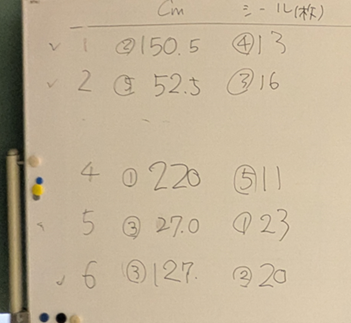 cm シール(枚)
✓ 1 ②150.5 ④13
✓ 2 ⑤ 52.5 ③16
4 ① 220 ⑤11
5 ③ 27.0 ①23
✓ 6 ③127. ②20